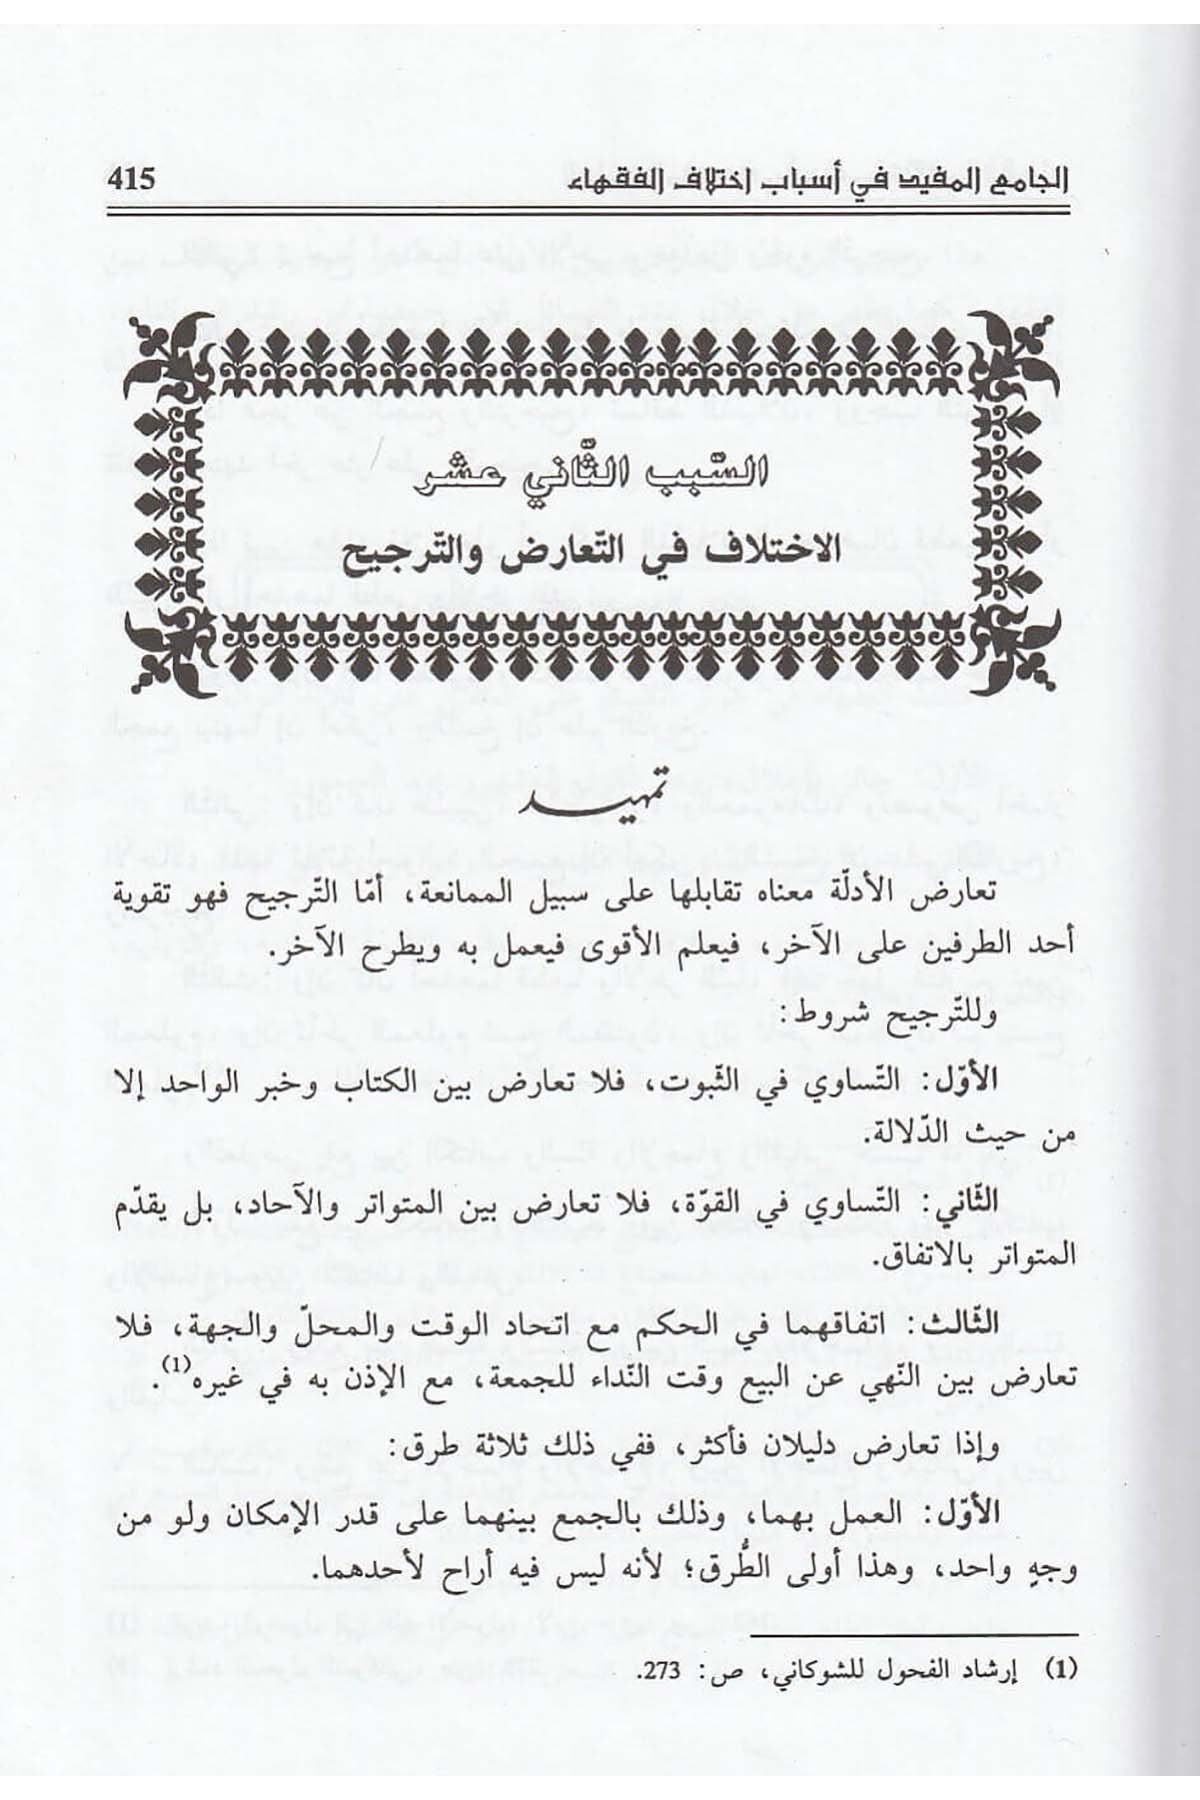 الجامع المفيد في أسباب اختلاف الفقهاء 415
السّبب الثّاني عشر
الاختلاف في التّعارض والتّرجيح
تمهيد
تعارض الأدلّة معناه تقابلها على سبيل الممانعة، أمّا التّرجيح فهو تقوية
أحد الطرفين على الآخر، فيعلم الأقوى فيعمل به ويطرح الآخر.
وللتّرجيح شروط:
الأوّل: التّساوي في الثّبوت، فلا تعارض بين الكتاب وخبر الواحد إلا
من حيث الدّلالة.
الثّاني: التّساوي في القوّة، فلا تعارض بين المتواتر والآحاد، بل يقدّم
المتواتر بالاتفاق.
الثّالث: اتفاقهما في الحكم مع اتحاد الوقت والمحلّ والجهة، فلا
تعارض بين النّهي عن البيع وقت النّداء للجمعة، مع الإذن به في غيره(1).
وإذا تعارض دليلان فأكثر، ففي ذلك ثلاثة طرق:
الأوّل: العمل بهما، وذلك بالجمع بينهما على قدر الإمكان ولو من
وجهٍ واحد، وهذا أولى الطُّرق؛ لأنه ليس فيه أراح لأحدهما.
(1) إرشاد الفحول للشوكاني، ص: 273.